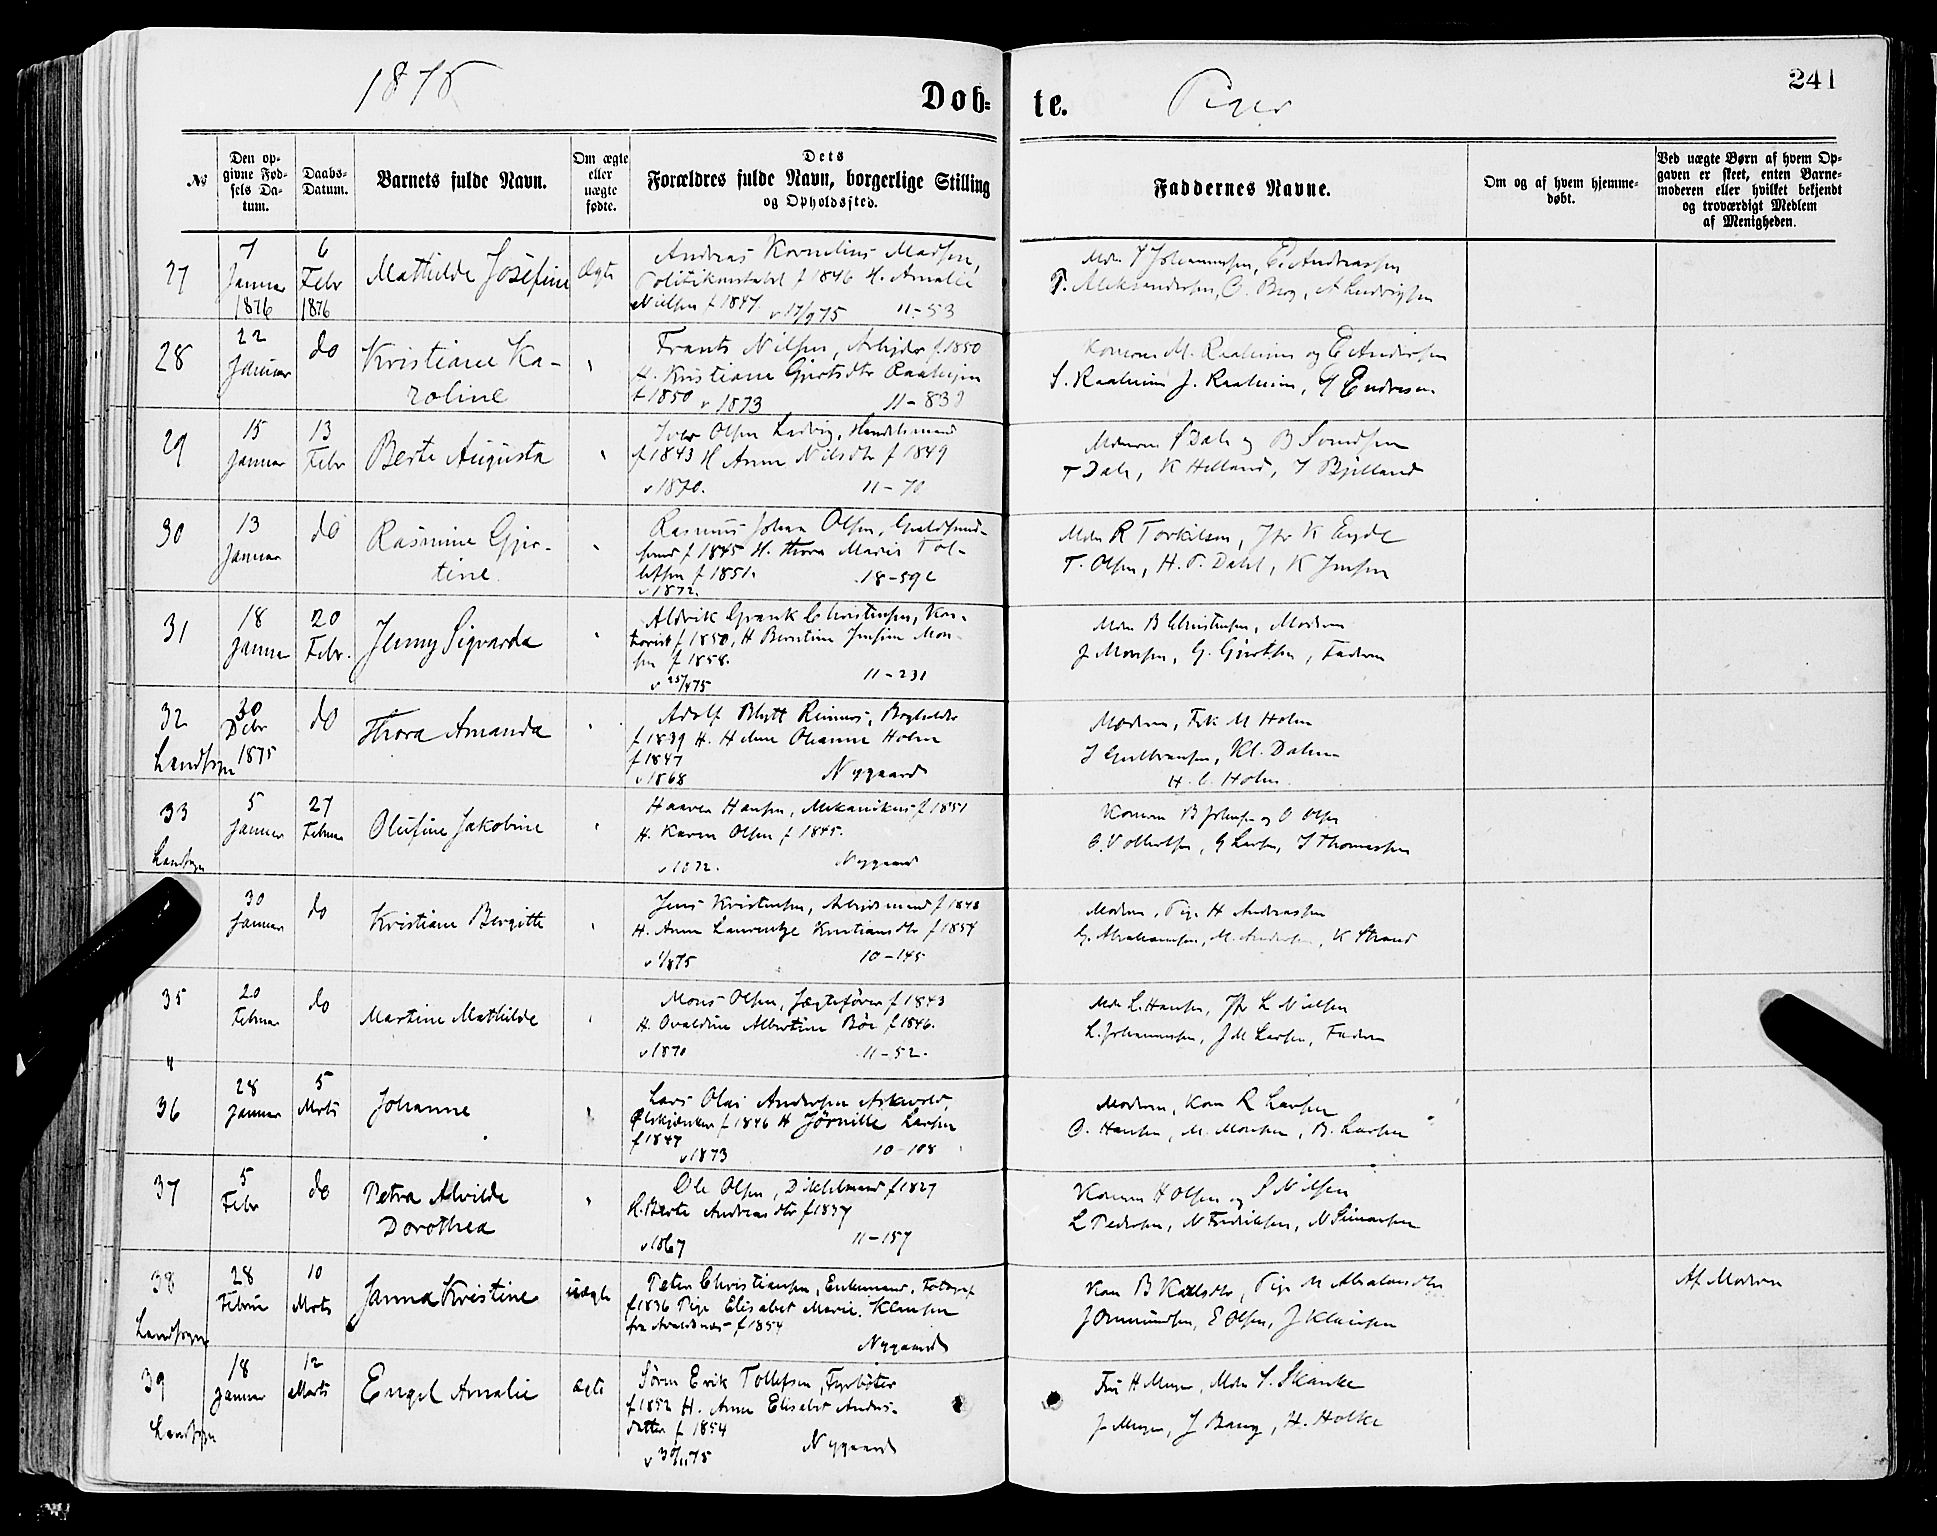 1876
Døb-
te.
Piger
241
No
Den op-
givne Fød-
sels Da-
tum.
Daabs-
Datum.
Barnets fulde Navn.
Om ægte
eller
uægte
fødte.
Dets
Forældres fulde Navn, borgerlige Stilling
og Opholdssted.
Faddernes Navne.
Om og af hvem hjemme-
døbt.
Ved uægte Børn af hvem Op-
gaven er skeet, enten Barne-
moderen eller hvilket bekjendt
og troværdigt Medlem
af Menigheden.
27
7
Januar
1876
6
Febr
1876
Mathilde Josefine
Ægte
Andreas Kornelius Madsen,
Politikonstabel f 1846 H. Amalie
Nielsen f 1847 v 17/9 75 11-53
Mdm Johannessen, E. Andreassen
T. Aleksandersen, O. Berg, A Ludvigsen
28
22
Januar
do
Kristiane Ka-
roline
Frants Nilsen, Arbejder f. 1850
H. Kristiane Gjertsdtr Raaheim
f 1850 v 1873 11-839
Konerne M. Raaheim og E Andersen
S. Raaheim J. Raaheim, Endresen
29
15
Januar
13
Febr
Berte Augusta
Iver Olsen Ladvig, Handelsmand
f 1843 H Anne Nilsdtr f 1849
v 1870. 11-70
Dale og B Svendsen
T Dale, K Helland, Bjelland
30
13
Januar
do
Rasmine Gjer-
tine.
Rasmus Johan Olsen,
f 1845 H. Thora Marie Tol-
lefsen f 1851. 18-592
v 1872.
Mdm R Torkilsen, Jfr K Eyde
T. Olsen, H. T. Dahl, K Jensen
31
18
Januar
20
Febr.
Jenny Sigvarda
Aldrik Grank Christensen, Kon-
torist f 1850, H Berntine Jensine Mon-
sen f 1858.
v 25/4 75 11-231
Mdm B Christensen, Moderen
J Monsen, G. Gjertsen, Faderen
32
Landsogn
30
Debr
1875
do
Thora Amanda
Adolf Blytt Reimers, Bogholder
f 1839 H. Helene Oleanne Holm
f 1847
v 1868 Nygaard
Moderen, Frk M Holm
Gulbransen, Kl. Dahm
H. C. Holm
33
Landsogn
5
Januar
27
Februar
Olufine Jakobine
Haaver Hansen, Mekanikus f 1851
H. Karen Olsen f 1845.
v 1872. Nygaard
Konerne B Johnsen og O Olsen
O. Vollertsen, G Larsen, Thomassen
30
Januar
do
Kristiane Bergitte
Jens Kristensen, Arbeidsmand f 1848
H. Anne Laurentze Kristiansdtr f 1854
v 1/8 75 10-145
Moderen, Pige H Andreassen
G. Abrahamsen, M. Andersen, K Strand
35
20
Februar
do
Martine Mathilde
Mons Olsen, Jægtefører f 1843
H. Ovaldine Albertine Bøe f 1846.
v 1870 11-52.
Mdm L. Hansen, Jfr L Nielsen
L. Johannessen, J M Larsen, Faderen
36
28
Januar
5
Marts
Johanne
Lars Olai Andersen Askvold,
Ølskjænker f 1846 H Jørnille Larsen
f 1847
v 1873 10-108
Moderen, Kone R Larsen
O. Hansen, M. Monsen, B. Larsen
37
5
Febr
do
Petra Alvilde
Dorothea
Ole Olsen, f 1827
H. Berte Andreasdtr f 1837
v 1867 11-157
Konerne H Olsen og S Nilsen
L Pedersen, N Fredriksen, N Simonsen
38
Landsogn
28
Februar
10
Marts
Janna Kristine
uægte
Peter Christiansen, Enkemand, Fotograf
f 1836 Pige Elisabet Marie Klausen
fra Avaldsnæs f 1854
Nygaard
Kone B Karlsdtr, Pige M Abrahamsdtr
J Ommundsen, E Olsen, J Klausen
Af Moderen
39
Landsogn
18
Januar
12
Marts
Engel Amalie
ægte
Søren Erik Tollefsen, Fyrbøter
f 1852 H. Anne Elisabet Anders-
datter f 1854
v 30/11 75 Nygaard
Fru H Meyer, Mdm S. Skanke
J Meyer, J Bang, H. Holke